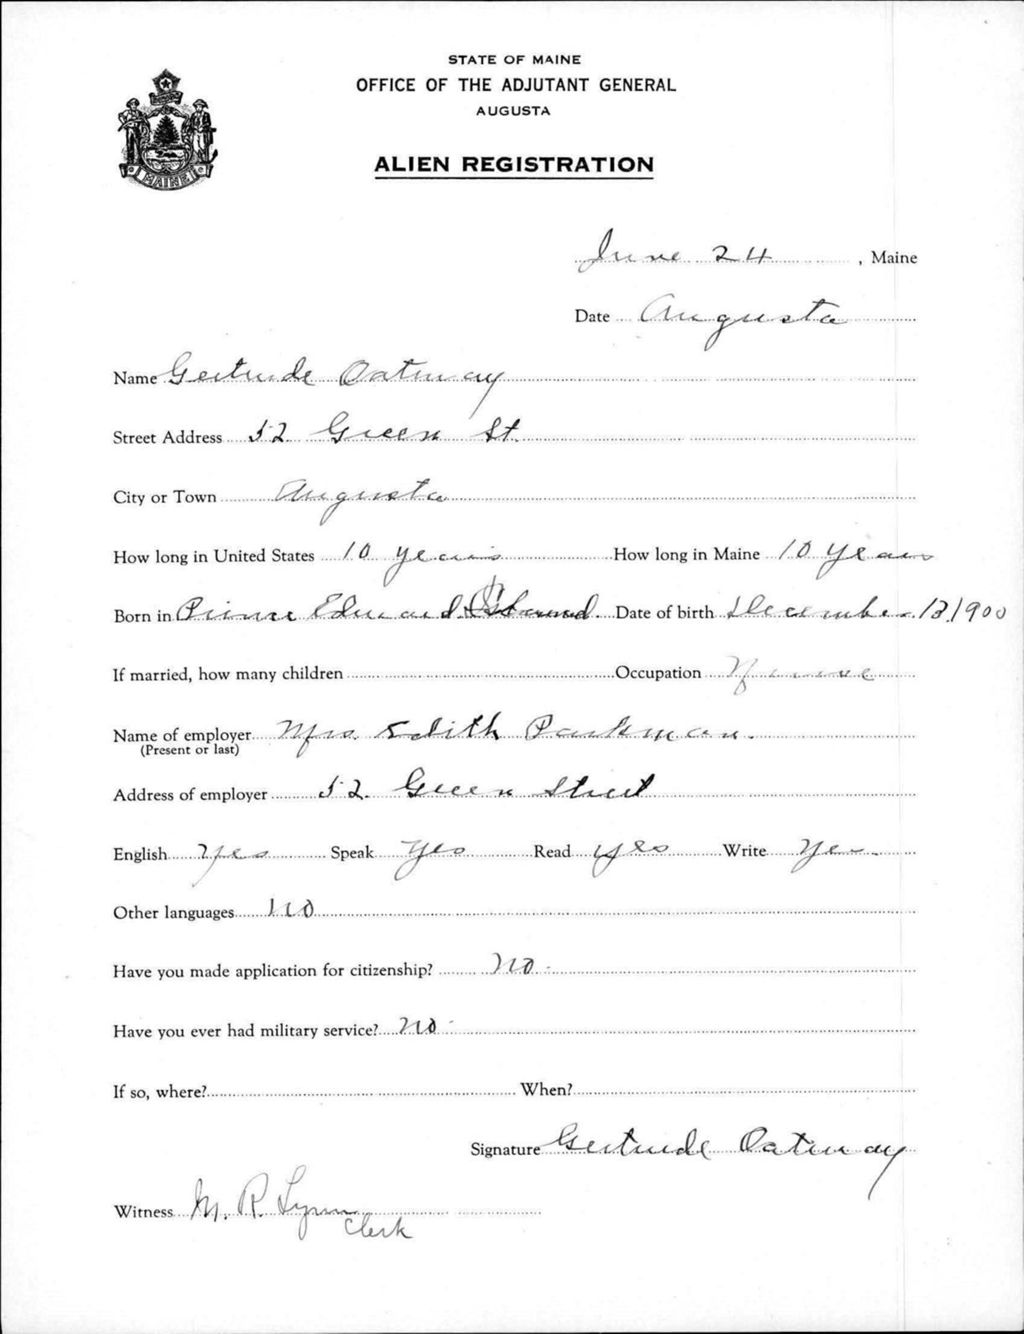 STATE OF MAINE
OFFICE OF THE ADJUTANT GENERAL
AUGUSTA
ALIEN REGISTRATION
MAINE
June 24, Maine
Date Augusta
Name Gertrude Oatway
Street Address 52 Green St.
City or Town Augusta
How long in United States 10 years How long in Maine 10 years
Born in Prince Edward Island. Date of birth December 13, 1900
If married, how many children Occupation Nurse
Name of employer Mrs. Edith Parkman.
(Present or last)
Address of employer 52 Green Street
English Yes Speak Yes Read yes Write Yes
Other languages No
Have you made application for citizenship? No
Have you ever had military service? No
If so, where? When?
Signature Gertrude Oatway
Witness M. R. Lynn
Clerk